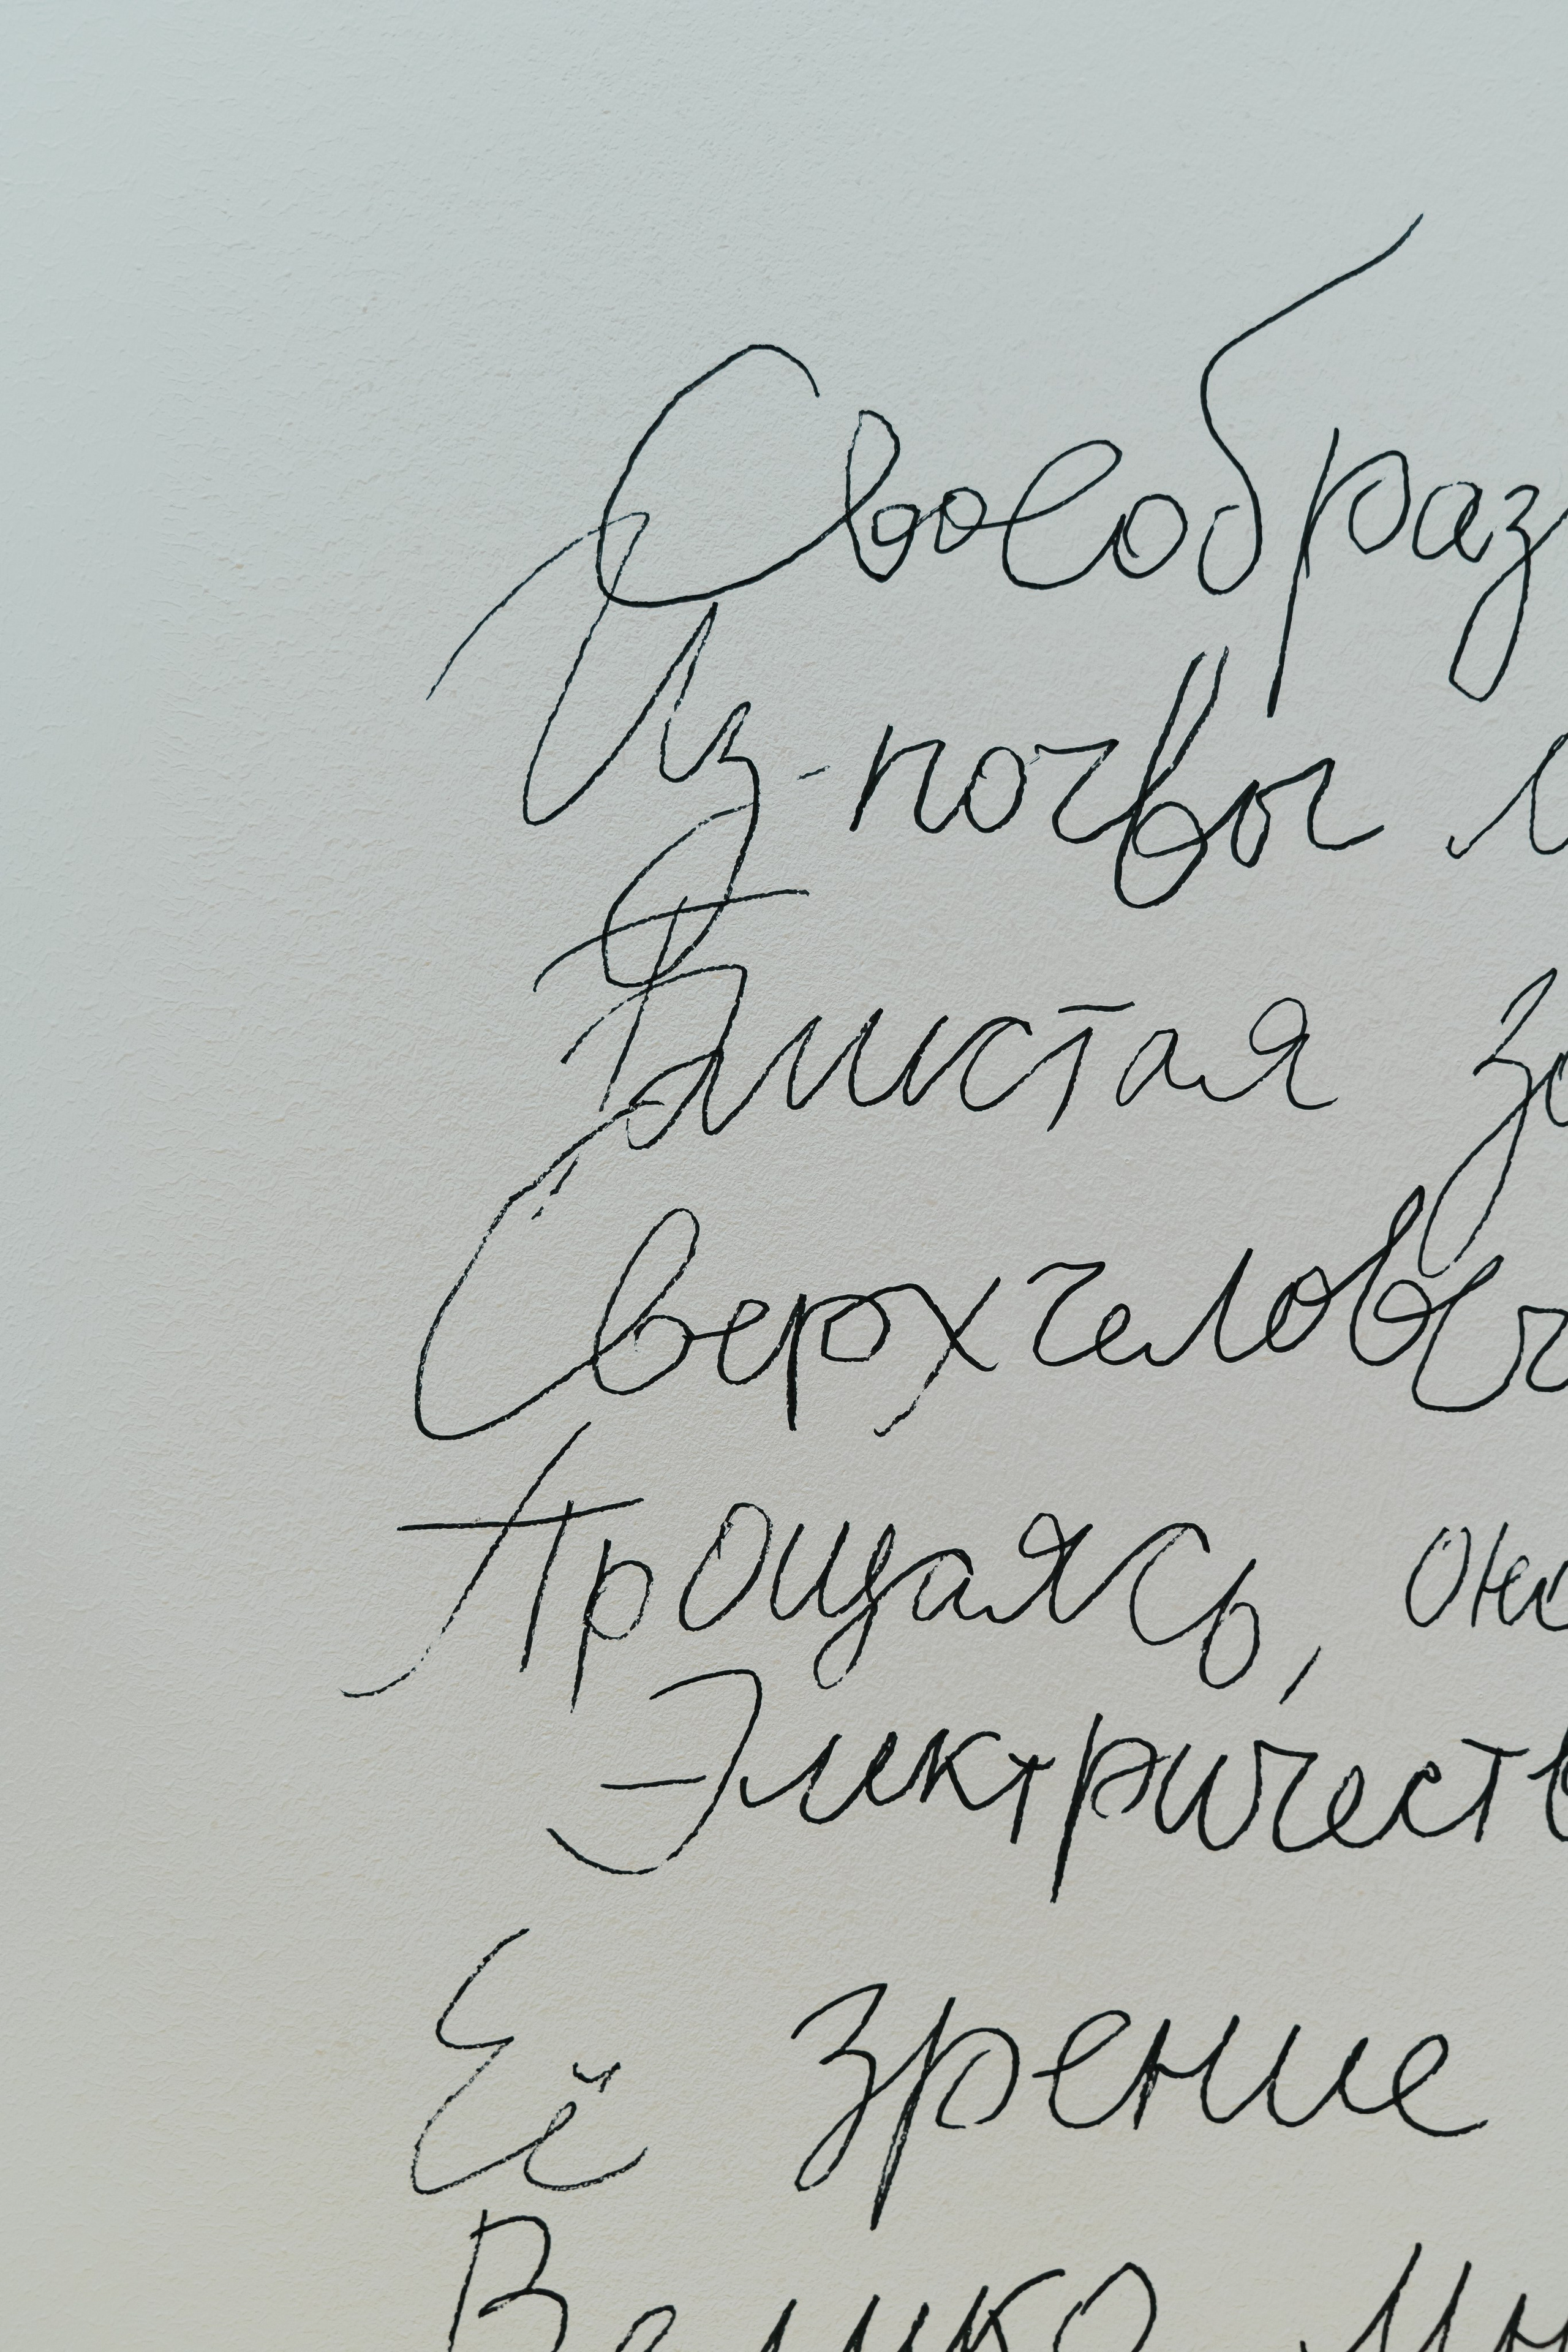 Своеобраз
Из-почвы
Сверхчелов
Прощаясь, он
Электричеств
Её зрение
Велико